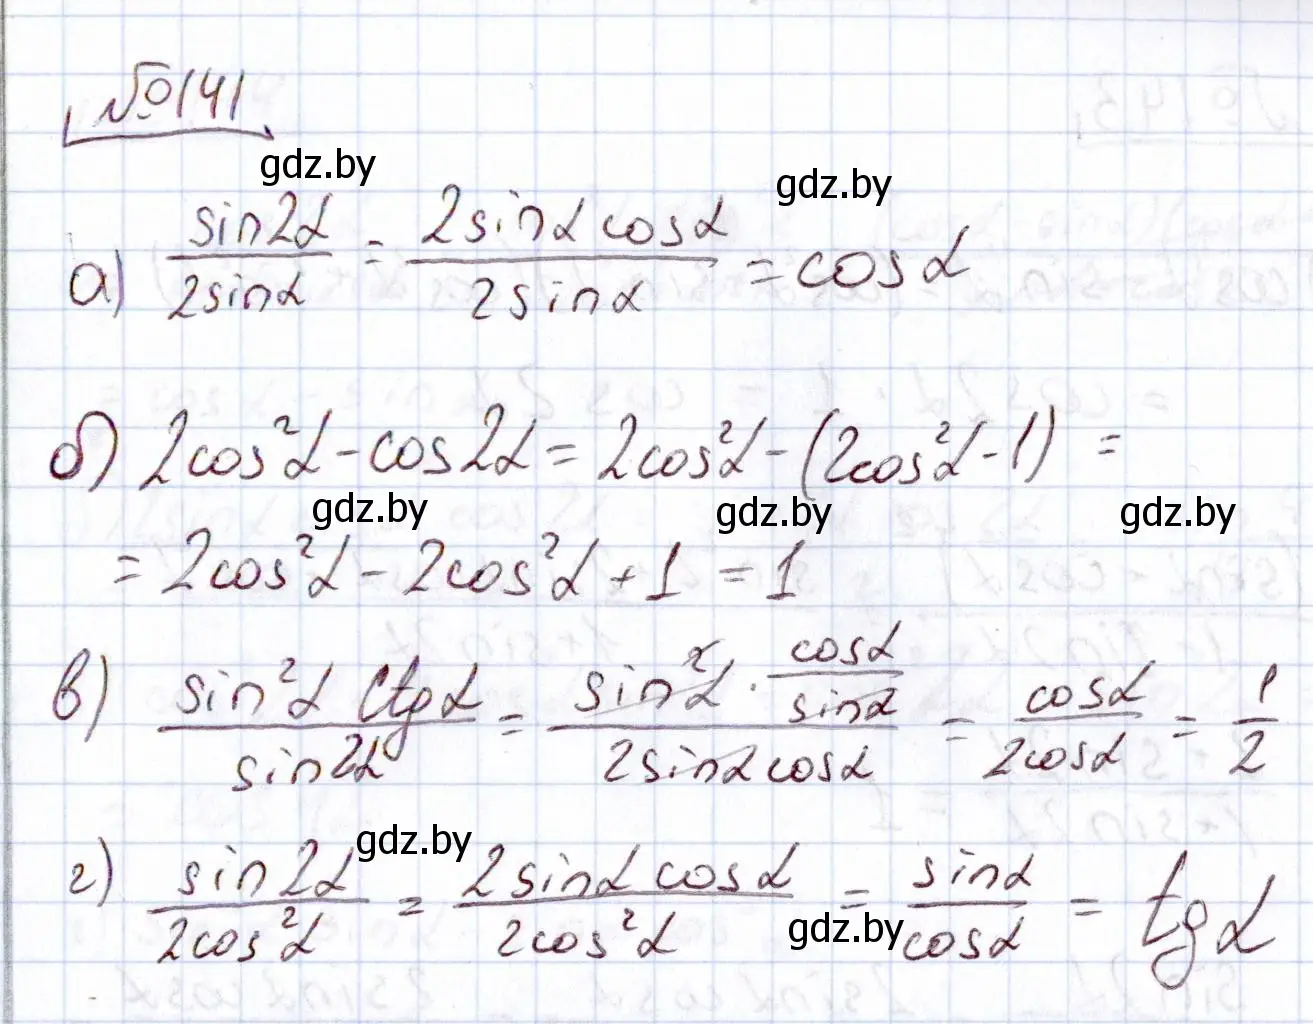 №141
gdz.by
gdz.by
а) sin2α/2sinα = 2sinα cosα/2sinα = cosα
б) 2cos²α - cos2α = 2cos²α - (2cos²α - 1) =
gdz.by
gdz.by
gdz.by
= 2cos²α - 2cos²α + 1 = 1
в) sin²α ctgα/sin2α = sin²α · cosα/sinα/2sinα cosα = cosα/2cosα = 1/2
gdz.by
г) sin2α/2cos²α = 2sinα cosα/2cos²α = sinα/cosα = tgα
gdz.by